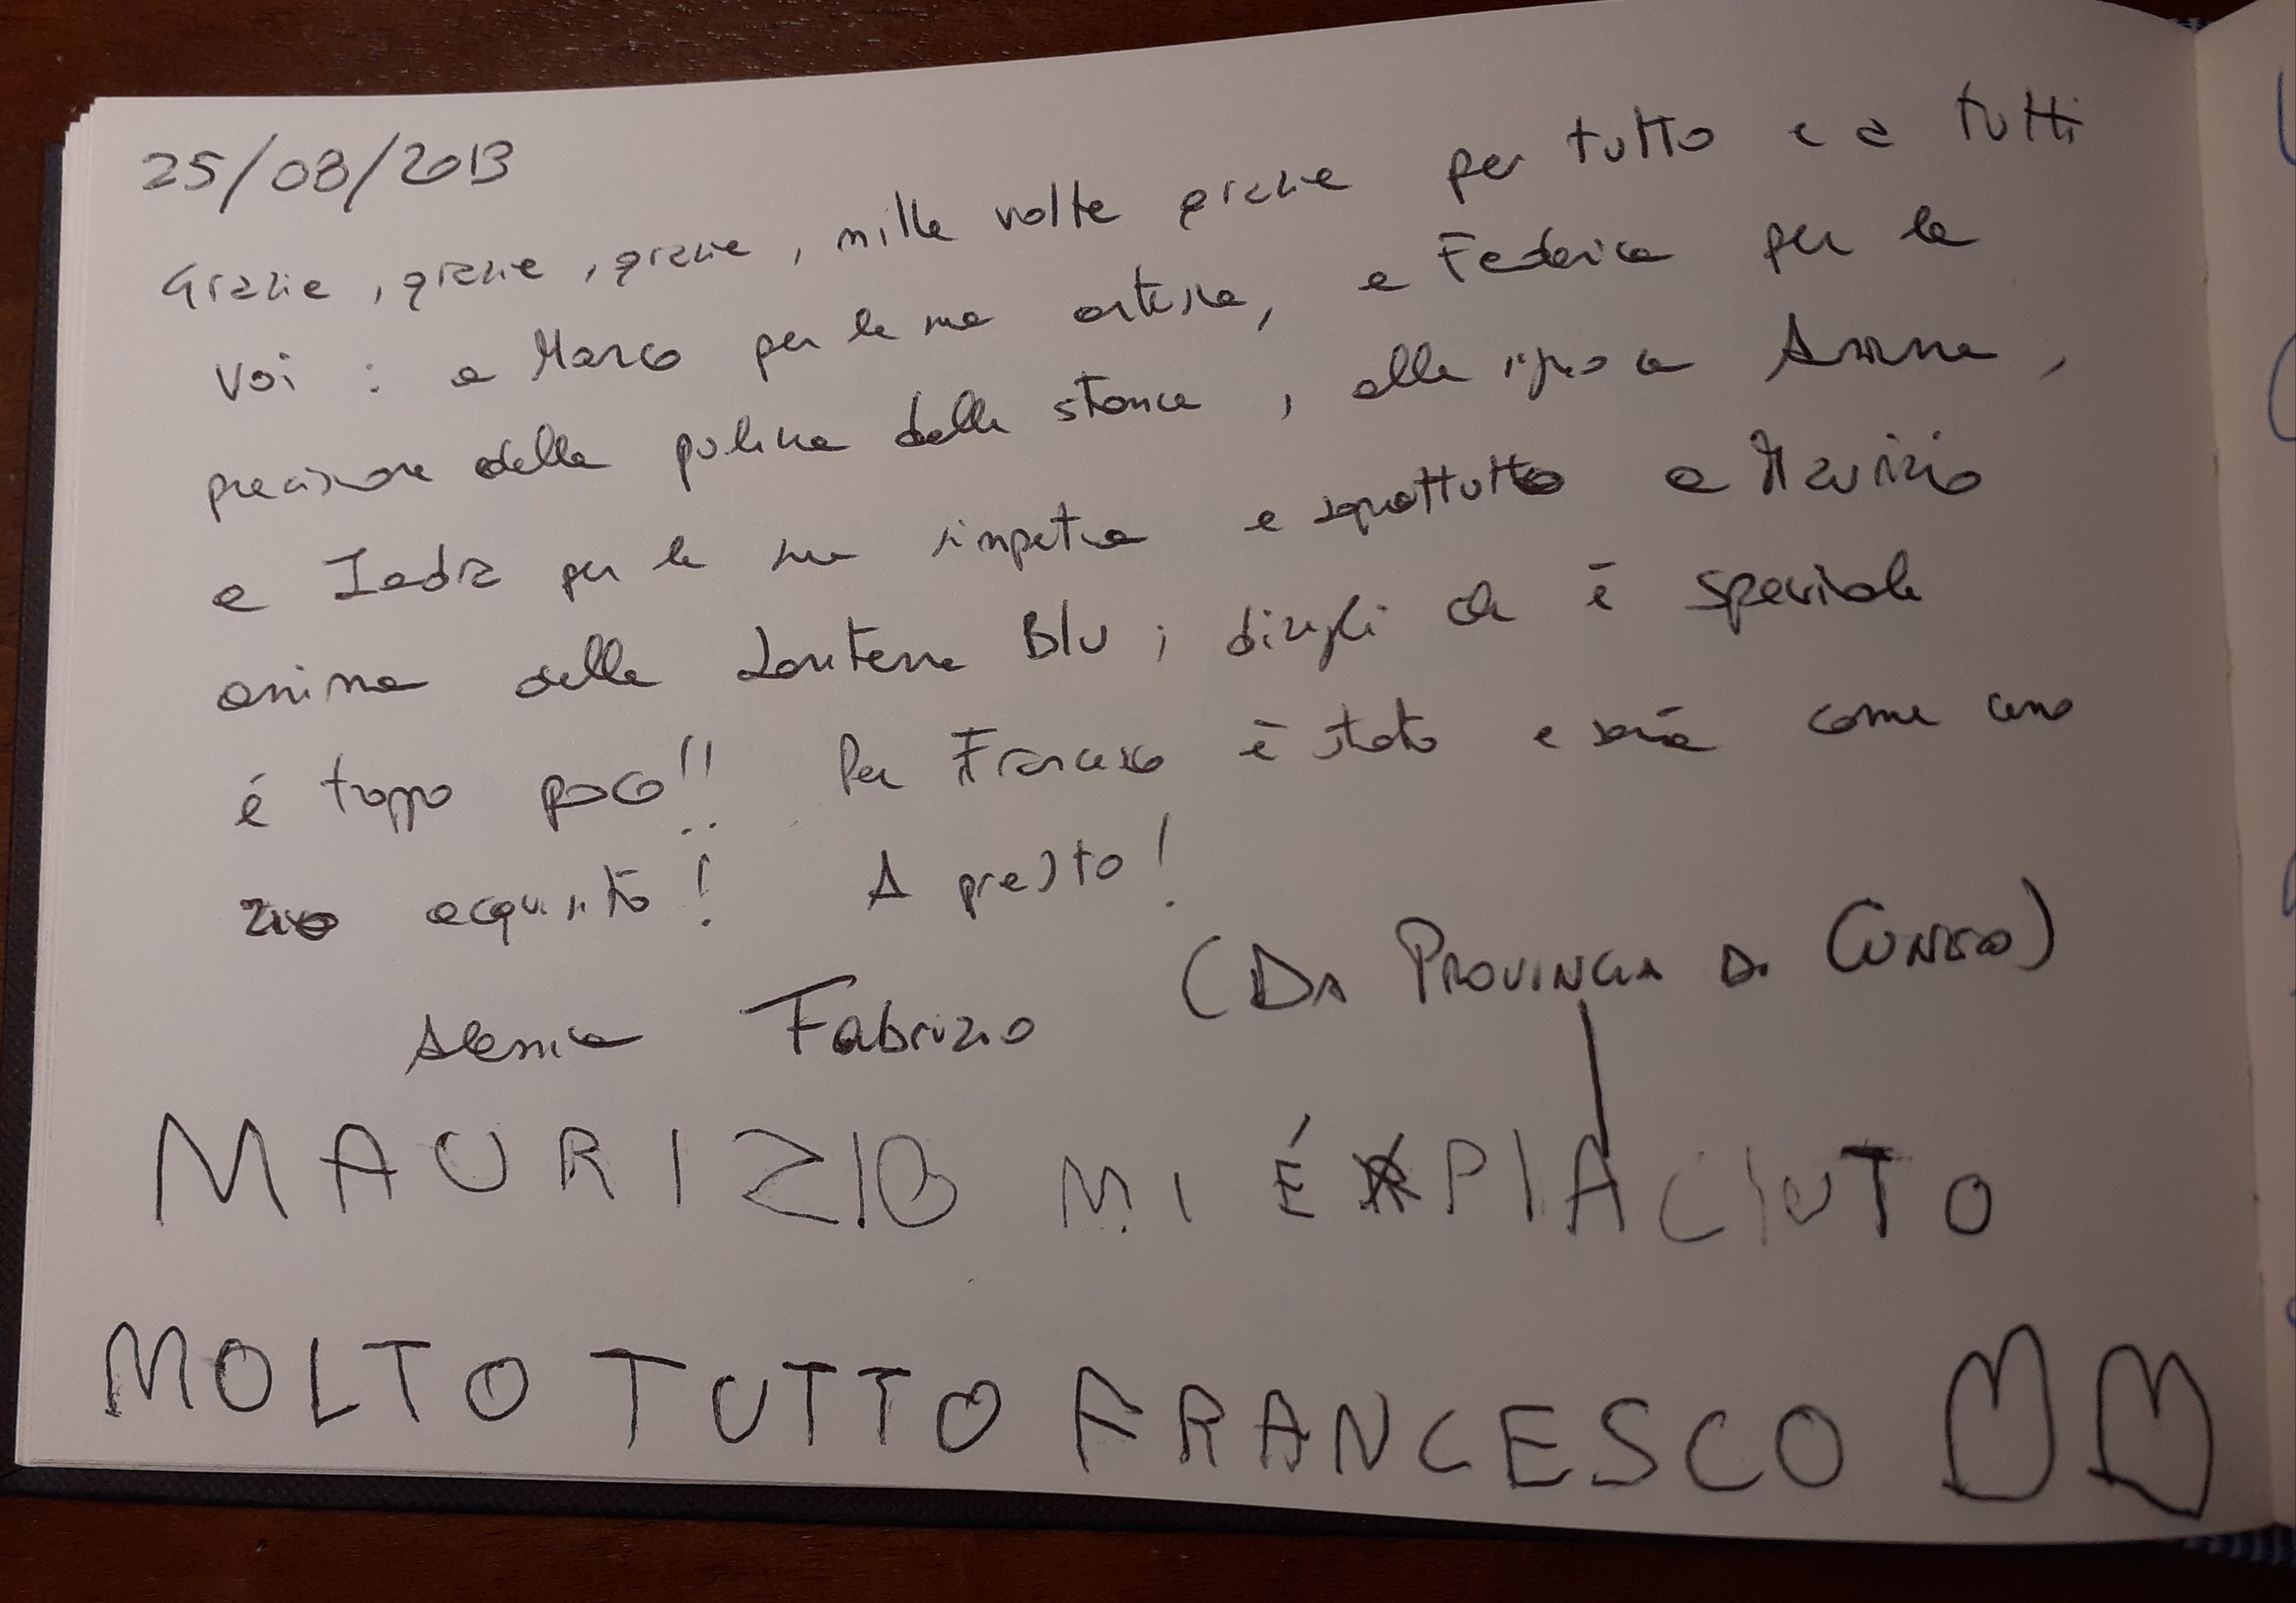 25/08/2013
Grazie, grazie, grazie, mille volte grazie per tutto e a tutti
voi : a Marco per la sua cortesia, a Federica per la
precisione della pulizia delle stanze, alla signora Anna,
a Iadra per la sua simpatia e soprattutto a Maurizio
anima della Lanterna Blu ; dirgli che è speciale
é troppo poco!! Per Francesco è stato e sarà come uno
zio acquisito! A presto!
Alessia Fabrizio (DA PROVINCIA DI CUNEO)
MAURIZIO MI É PIACIUTO
MOLTO TUTTO FRANCESCO